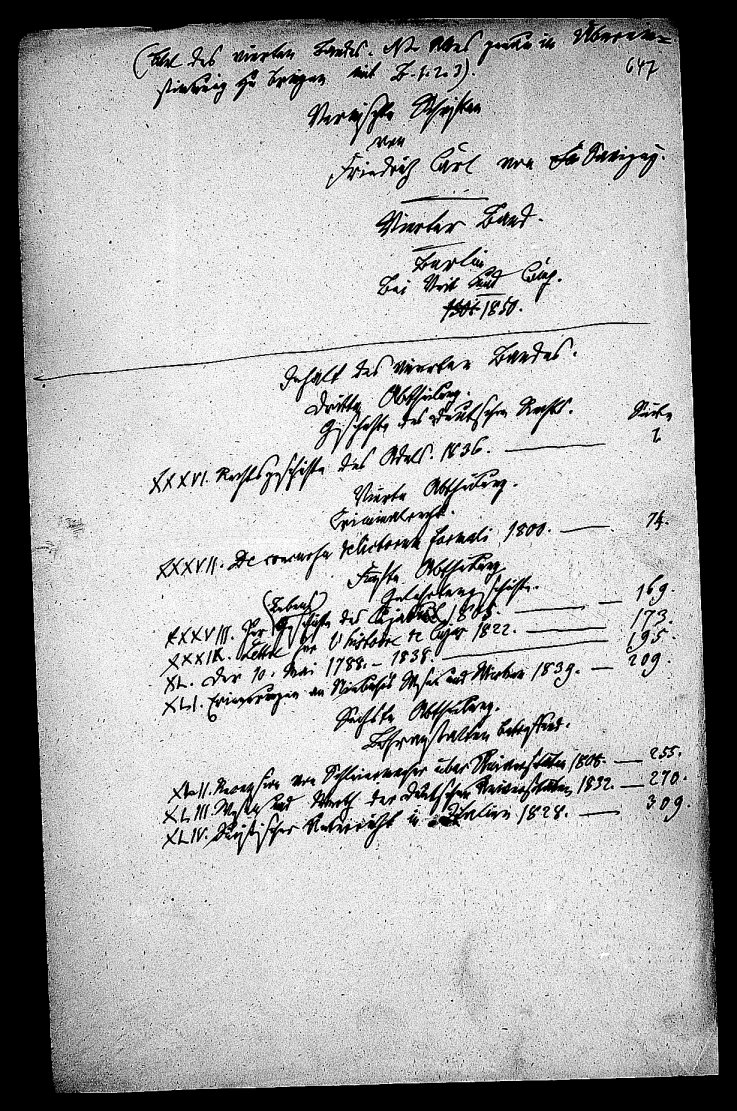 (Titel des vierten Bandes. NB. Alles genau in Überein=
stimmung zu bringen mit B. 1. 2. 3).
647
Vermischte Schriften
von
Friedrich Carl von Savigny.
Vierter Band.
Berlin
Bei Veit und Comp.
1850.
Inhalt des vierten Bandes.
Dritte Abtheilung.
Geschichte des Deutschen Rechts.
Seite
XXXVI. Rechtsgeschichte des Adels. 1836. — 1
Vierte Abtheilung.
Criminalrecht.
XXXVII. De concursu delictorum formali 1800. — 74.
Fünfte Abtheilung.
Gelehrtengeschichte.
XXXVIII. Zur (Lebens) Geschichte des Cujacius 1805. — 169.
XXXIX. Lettre sur l'histoire de Cujas 1822. — 173.
XL. Der 10. Mai 1788. – 1838. — 195.
XLI. Erinnerungen an Niebuhrs Wesen und Wirken 1839. — 209.
Sechste Abtheilung.
Lehranstalten betreffend.
XLII. Recension von Schleiermacher über Universitäten 1808. — 255.
XLIII. Wesen und Werth der Deutschen Universitäten 1832. — 270.
XLIV. Juristischer Unterricht in Italien 1828. — 309.